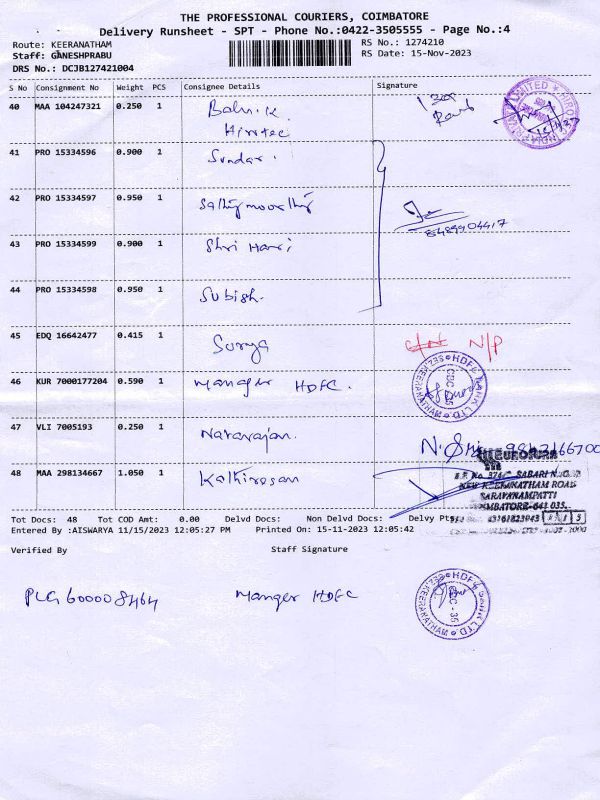 THE PROFESSIONAL COURIERS, COIMBATORE
Delivery Runsheet - SPT - Phone No.:0422-3505555 - Page No.:4
Route: KEERANATHAM RS No.: 1274210
Staff: GANESHPRABU RS Date: 15-Nov-2023
DRS No.: DCJB127421004
S No Consignment No Weight PCS Consignee Details Signature
40 MAA 104247321 0.250 1 Balu.K
Hirotec
41 PRO 15334596 0.900 1 Sundar.
42 PRO 15334597 0.950 1 Sathiymoorthiy
8489904417
43 PRO 15334599 0.900 1 Shri Hari
44 PRO 15334598 0.950 1 Subish.
45 EDQ 16642477 0.415 1 Surya N/P
46 KUR 7000177204 0.590 1 Manager HDFC.
HDFC BANK LTD.
SEZ KEERANATHAM
47 VLI 7005193 0.250 1 Natarajan.
48 MAA 298134667 1.050 1 Kathiresan
NEW KEERANATHAM ROAD
SARAVANAMPATTI
COIMBATORE-641 035.
Tot Docs: 48 Tot COD Amt: 0.00 Delvd Docs: Non Delvd Docs: Delvy Pts:
Entered By :AISWARYA 11/15/2023 12:05:27 PM Printed On: 15-11-2023 12:05:42
Verified By Staff Signature
PLG600008464 Manger HDFC
HDFC BANK LTD.
SEZ KEERANATHAM